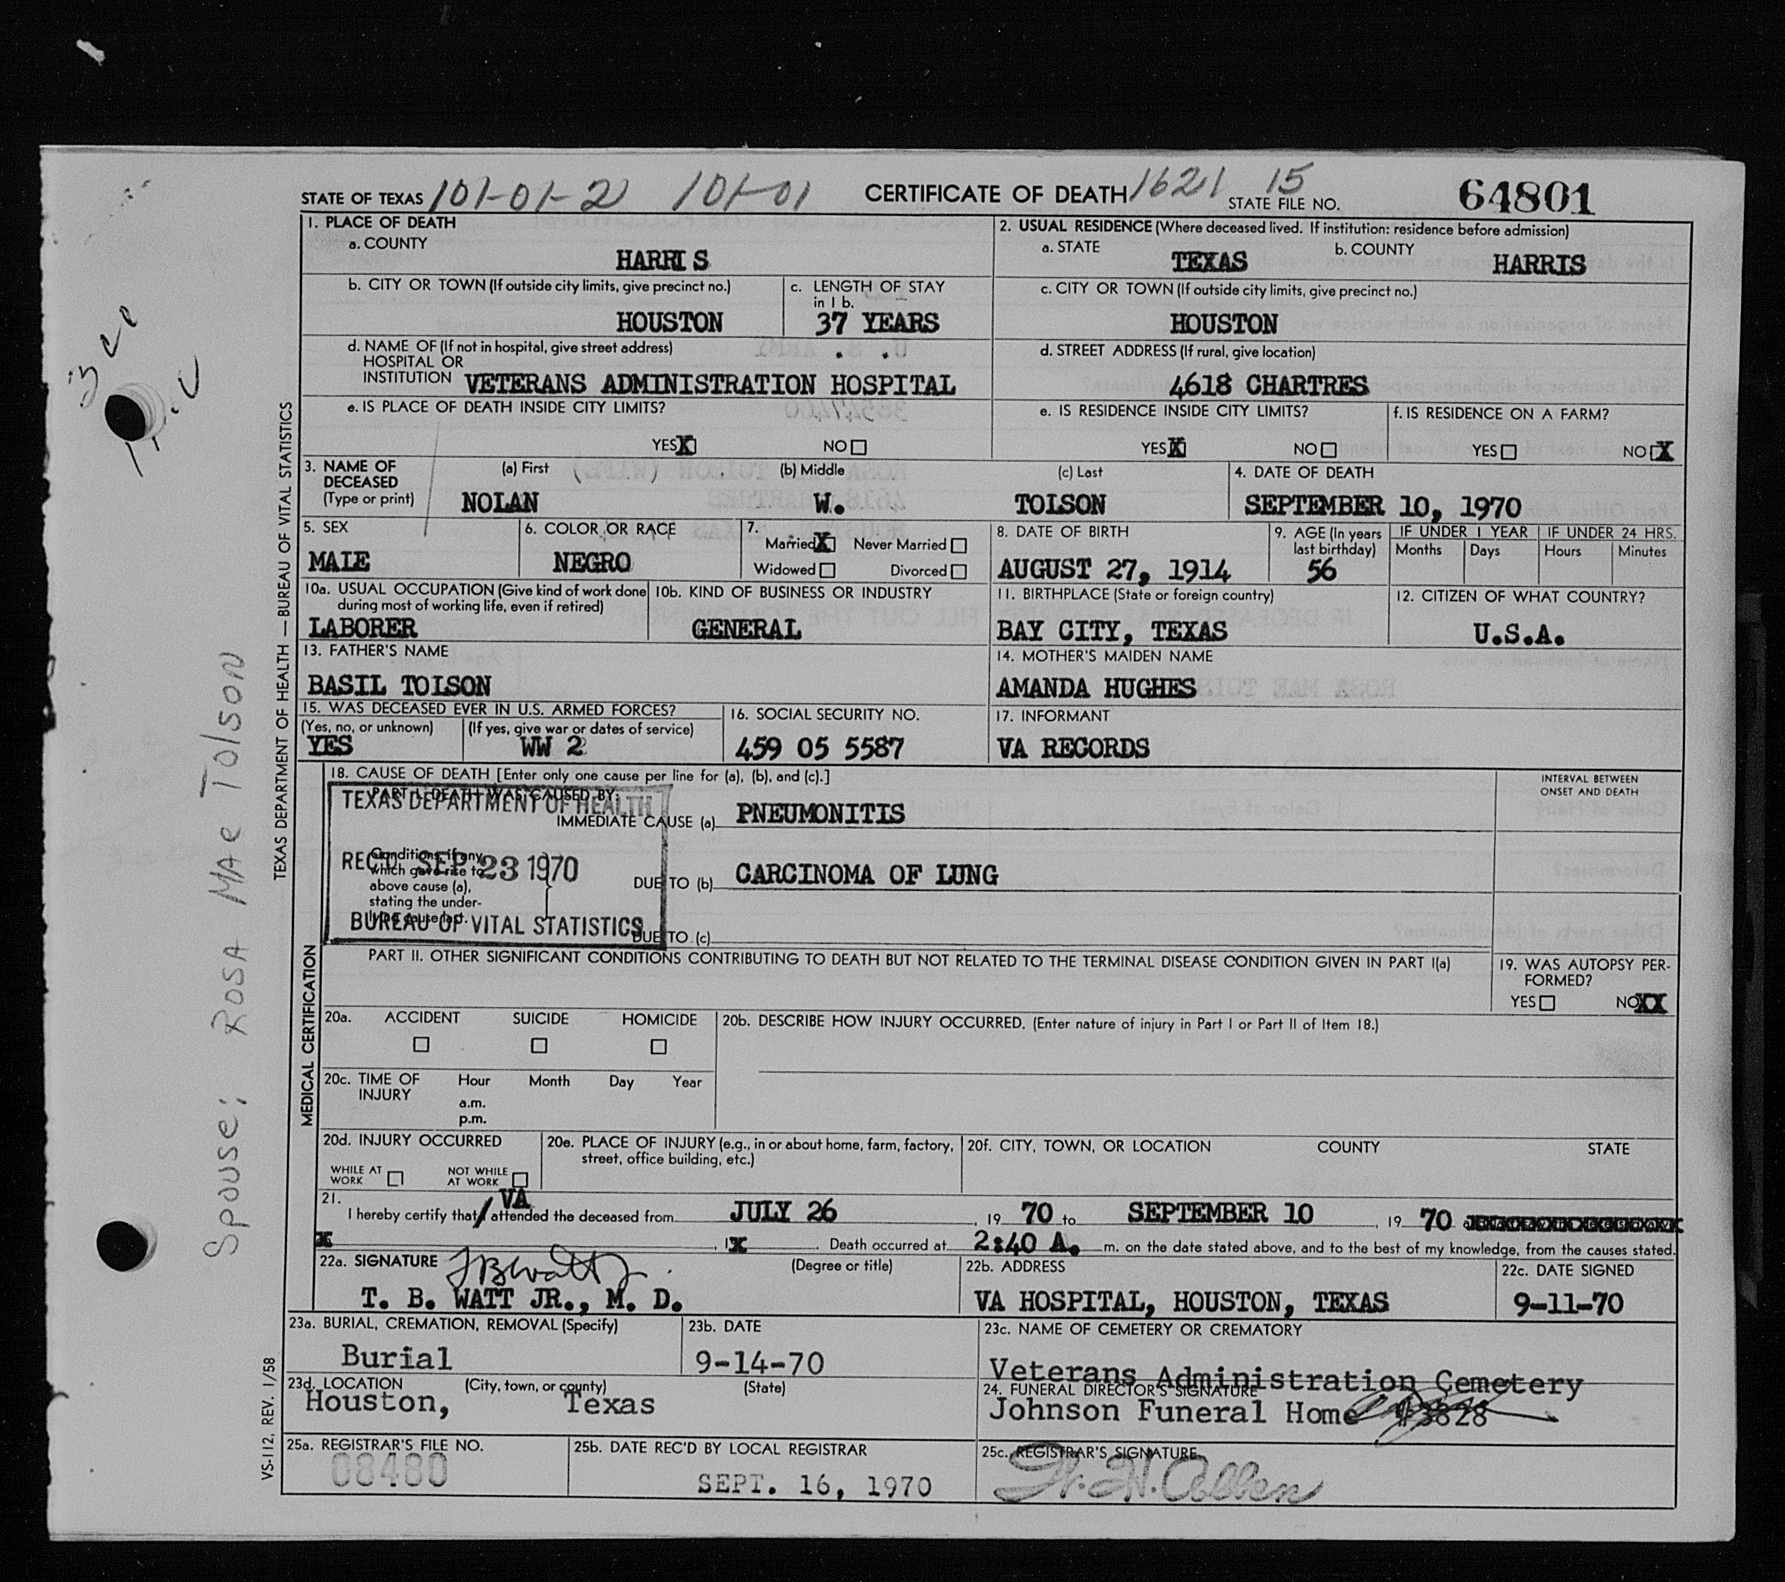 STATE OF TEXAS 101-01-2 101-01 CERTIFICATE OF DEATH 1621 15 STATE FILE NO. 64801
1. PLACE OF DEATH
a. COUNTY
HARRIS
2. USUAL RESIDENCE (Where deceased lived. If institution: residence before admission)
a. STATE b. COUNTY
TEXAS HARRIS
b. CITY OR TOWN (If outside city limits, give precinct no.)
HOUSTON
c. LENGTH OF STAY
in 1 b.
37 YEARS
c. CITY OR TOWN (If outside city limits, give precinct no.)
HOUSTON
d. NAME OF (If not in hospital, give street address)
HOSPITAL OR
INSTITUTION VETERANS ADMINISTRATION HOSPITAL
d. STREET ADDRESS (If rural, give location)
4618 CHARTRES
e. IS PLACE OF DEATH INSIDE CITY LIMITS?
YES X NO
e. IS RESIDENCE INSIDE CITY LIMITS?
YES X NO
f. IS RESIDENCE ON A FARM?
YES NO X
3. NAME OF
DECEASED
(Type or print)
(a) First (b) Middle (c) Last
NOLAN W. TOLSON
4. DATE OF DEATH
SEPTEMBER 10, 1970
5. SEX
MALE
6. COLOR OR RACE
NEGRO
7.
Married X Never Married
Widowed Divorced
8. DATE OF BIRTH
AUGUST 27, 1914
9. AGE (In years
last birthday)
56
IF UNDER 1 YEAR IF UNDER 24 HRS.
Months Days Hours Minutes
10a. USUAL OCCUPATION (Give kind of work done
during most of working life, even if retired)
LABORER
10b. KIND OF BUSINESS OR INDUSTRY
GENERAL
11. BIRTHPLACE (State or foreign country)
BAY CITY, TEXAS
12. CITIZEN OF WHAT COUNTRY?
U.S.A.
13. FATHER'S NAME
BASIL TOLSON
14. MOTHER'S MAIDEN NAME
AMANDA HUGHES
15. WAS DECEASED EVER IN U.S. ARMED FORCES?
(Yes, no, or unknown) (If yes, give war or dates of service)
YES WW 2
16. SOCIAL SECURITY NO.
459 05 5587
17. INFORMANT
VA RECORDS
18. CAUSE OF DEATH [Enter only one cause per line for (a), (b), and (c).]
INTERVAL BETWEEN
ONSET AND DEATH
PART I. DEATH WAS CAUSED BY:
IMMEDIATE CAUSE (a) PNEUMONITIS
Conditions, if any,
which gave rise to
above cause (a),
stating the under-
lying cause last.
DUE TO (b) CARCINOMA OF LUNG
DUE TO (c)
TEXAS DEPARTMENT OF HEALTH
REC'D SEP 23 1970
BUREAU OF VITAL STATISTICS
PART II. OTHER SIGNIFICANT CONDITIONS CONTRIBUTING TO DEATH BUT NOT RELATED TO THE TERMINAL DISEASE CONDITION GIVEN IN PART I(a)
19. WAS AUTOPSY PER-
FORMED?
YES NO XX
20a. ACCIDENT SUICIDE HOMICIDE
20b. DESCRIBE HOW INJURY OCCURRED. (Enter nature of injury in Part I or Part II of Item 18.)
20c. TIME OF
INJURY
Hour Month Day Year
a.m.
p.m.
20d. INJURY OCCURRED
WHILE AT
WORK
NOT WHILE
AT WORK
20e. PLACE OF INJURY (e.g., in or about home, farm, factory,
street, office building, etc.)
20f. CITY, TOWN, OR LOCATION COUNTY STATE
21. VA
I hereby certify that / attended the deceased from JULY 26, 19 70 to SEPTEMBER 10, 19 70
X, 1X. Death occurred at 2:40 A. m. on the date stated above, and to the best of my knowledge, from the causes stated.
22a. SIGNATURE T B Watt Jr. (Degree or title)
T. B. WATT JR., M. D.
22b. ADDRESS
VA HOSPITAL, HOUSTON, TEXAS
22c. DATE SIGNED
9-11-70
23a. BURIAL, CREMATION, REMOVAL (Specify)
Burial
23b. DATE
9-14-70
23c. NAME OF CEMETERY OR CREMATORY
Veterans Administration Cemetery
23d. LOCATION (City, town, or county) (State)
Houston, Texas
24. FUNERAL DIRECTOR'S SIGNATURE
Johnson Funeral Home #3828
25a. REGISTRAR'S FILE NO.
08480
25b. DATE REC'D BY LOCAL REGISTRAR
SEPT. 16, 1970
25c. REGISTRAR'S SIGNATURE
TEXAS DEPARTMENT OF HEALTH — BUREAU OF VITAL STATISTICS
MEDICAL CERTIFICATION
VS-112, REV. 1/58
Spouse; ROSA MAE Tolson